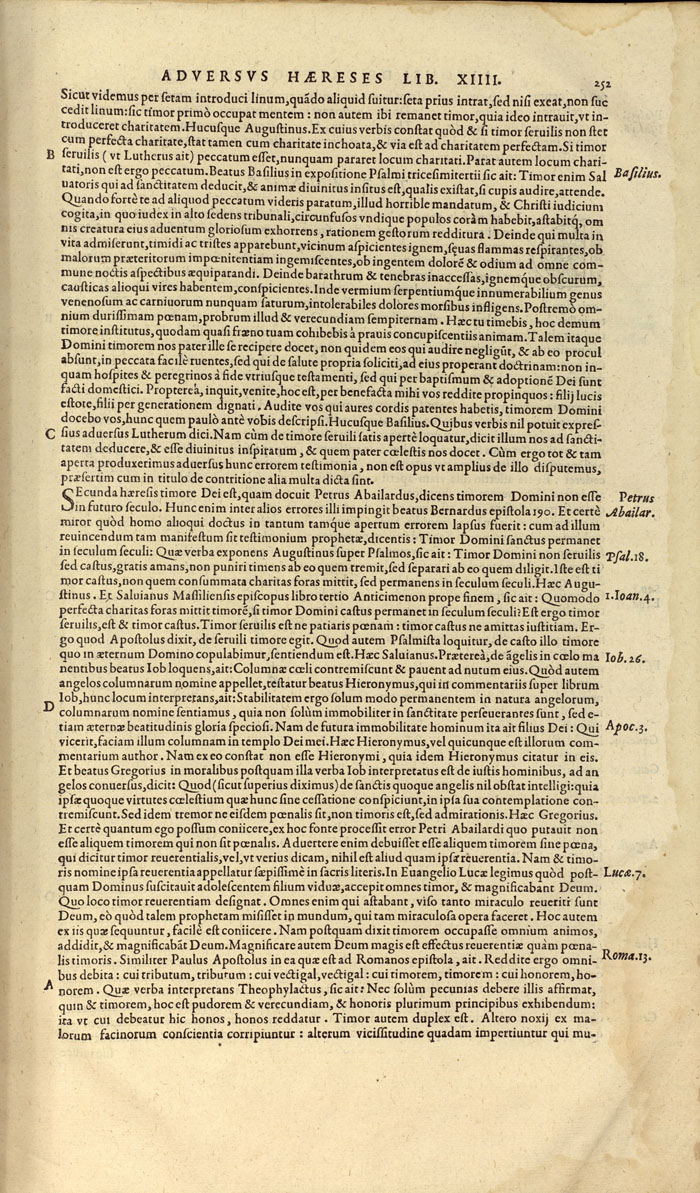 ADVERSVS HÆRESES LIB. XIIII.
252
Sicut videmus per setam introduci linum, quãdo aliquid suitur: seta prius intrat, sed nisi exeat, non suc
cedit linum: sic timor primò occupat mentem: non autem ibi remanet timor, quia ideo intrauit, vt in-
troduceret charitatem. Hucusque Augustinus. Ex cuius verbis constat quòd & si timor seruilis non stet
cum perfecta charitate, stat tamen cum charitate inchoata, & via est ad charitatem perfectam. Si timor
B
seruilis (vt Lutherus ait) peccatum esset, nunquam pararet locum charitati. Parat autem locum chari-
tati, non est ergo peccatum. Beatus Basilius in expositione Psalmi tricesimitertii sic ait: Timor enim Sal
Basilius.
uatoris qui ad sanctitatem deducit, & animæ diuinitus insitus est, qualis existat, si cupis audire, attende.
Quando fortè te ad aliquod peccatum videris paratum, illud horribile mandatum, & Christi iudicium
cogita, in quo iudex in alto sedens tribunali, circunfusos vndique populos coràm habebit, astabitq́, om
nis creatura eius aduentum gloriosum exhorrens, rationem gestorum redditura. Deinde qui multa in
vita admiserunt, timidi ac tristes apparebunt, vicinum aspicientes ignem, sęuas flammas respirantes, ob
malorum præteritorum impœnitentiam ingemiscentes, ob ingentem dolorẽ & odium ad omne com-
mune noctis aspectibus æquiparandi. Deinde barathrum & tenebras inaccessas, ignemque obscurum,
causticas alioqui vires habentem, conspicientes. Inde vermium serpentiumque innumerabilium genus
venenosum ac carniuorum nunquam saturum, intolerabiles dolores morsibus infligens. Postremò om-
nium durissimam pœnam, probrum illud & verecundiam sempiternam. Hæc tu timebis, hoc demum
timore institutus, quodam quasi fræno tuam cohibebis à prauis concupiscentiis animam. Talem itaque
Domini timorem nos pater ille se recipere docet, non quidem eos qui audire negligũt, & ab eo procul
absunt, in peccata facilè ruentes, sed qui de salute propria soliciti, ad eius properant doctrinam: non in-
quam hospites & peregrinos à fide vtriusque testamenti, sed qui per baptismum & adoptionẽ Dei sunt
facti domestici. Proptereà, inquit, venite, hoc est, per benefacta mihi vos reddite propinquos: filij lucis
estote, filii per generationem dignati. Audite vos qui aures cordis patentes habetis, timorem Domini
docebo vos, hunc quem paulò antè vobis descripsi. Hucusque Basilius. Quibus verbis nil potuit expres-
C
sius aduersus Lutherum dici. Nam cùm de timore seruili satis apertè loquatur, dicit illum nos ad sancti-
tatem deducere, & esse diuinitus inspiratum, & quem pater cœlestis nos docet. Cùm ergo tot & tam
aperta produxerimus aduersus hunc errorem testimonia, non est opus vt amplius de illo disputemus,
præsertim cum in titulo de contritione alia multa dicta sint.
SEcunda hæresis timore Dei est, quam docuit Petrus Abailardus, dicens timorem Domini non esse
Petrus
in futuro seculo. Hunc enim inter alios errores illi impingit beatus Bernardus epistola 190. Et certè
Abailar.
miror quòd homo alioqui doctus in tantum tamque apertum errorem lapsus fuerit: cum ad illum
reuincendum tam manifestum sit testimonium prophetæ, dicentis: Timor Domini sanctus permanet
in seculum seculi: Quæ verba exponens Augustinus super Psalmos, sic ait: Timor Domini non seruilis
Psal. 18.
sed castus, gratis amans, non puniri timens ab eo quem tremit, sed separari ab eo quem diligit. Iste est ti
mor castus, non quem consummata charitas foras mittit, sed permanens in seculum seculi. Hæc Augu-
stinus. Et Saluianus Massiliensis episcopus libro tertio Anticimenon prope finem, sic ait: Quomodo
1. Ioan. 4.
perfecta charitas foras mittit timorẽ, si timor Domini castus permanet in seculum seculi? Est ergo timor
seruilis, est & timor castus. Timor seruilis est ne patiaris pœnam: timor castus ne amittas iustitiam. Er-
go quod Apostolus dixit, de seruili timore egit. Quod autem Psalmista loquitur, de casto illo timore
quo in æternum Domino copulabimur, sentiendum est. Hæc Saluianus. Præterea, de ãgelis in cœlo ma
Iob. 26.
nentibus beatus Iob loquens, ait: Columnæ cœli contremiscunt & pauent ad nutum eius. Quòd autem
angelos columnarum nomine appellet, testatur beatus Hieronymus, qui in commentariis super librum
Iob, hunc locum interpretans, ait: Stabilitatem ergo solum modo permanentem in natura angelorum,
D
columnarum nomine sentiamus, quia non solùm immobiliter in sanctitate perseuerantes sunt, sed e-
tiam æternæ beatitudinis gloria speciosi. Nam de futura immobilitate hominum ita ait filius Dei: Qui
Apoc. 3.
vicerit, faciam illum columnam in templo Dei mei. Hæc Hieronymus, vel quicunque est illorum com-
mentarium author. Nam ex eo constat non esse Hieronymi, quia idem Hieronymus citatur in eis.
Et beatus Gregorius in moralibus postquam illa verba Iob interpretatus est de iustis hominibus, ad an
gelos conuersus, dicit: Quod (sicut superius diximus) de sanctis quoque angelis nil obstat intelligi: quia
ipsæ quoque virtutes cœlestium quæ hunc sine cessatione conspiciunt, in ipsa sua contemplatione con-
tremiscunt. Sed idem tremor ne eisdem pœnalis sit, non timoris est, sed admirationis. Hæc Gregorius.
Et certè quantum ego possum coniicere, ex hoc fonte processit error Petri Abailardi quo putauit non
esse aliquem timorem qui non sit pœnalis. Aduertere enim debuisset esse aliquem timorem sine pœna,
qui dicitur timor reuerentialis, vel, vt verius dicam, nihil est aliud quam ipsa reuerentia. Nam & timo-
ris nomine ipsa reuerentia appellatur sæpissimè in sacris literis. In Euangelio Lucæ legimus quòd post-
Lucæ. 7.
quam Dominus suscitauit adolescentem filium viduæ, accepit omnes timor, & magnificabant Deum.
Quo loco timor reuerentiam designat. Omnes enim qui astabant, viso tanto miraculo reueriti sunt
Deum, eò quòd talem prophetam misisset in mundum, qui tam miraculosa opera faceret. Hoc autem
ex iis quæ sequuntur, facilè est coniicere. Nam postquam dixit timorem occupasse omnium animos,
addidit, & magnificabãt Deum. Magnificare autem Deum magis est effectus reuerentiæ quàm pœna-
lis timoris. Similiter Paulus Apostolus in ea quæ est ad Romanos epistola, ait. Reddite ergo omni-
Roma. 13.
bus debita: cui tributum, tributum: cui vectigal, vectigal: cui timorem, timorem: cui honorem, ho-
A
norem. Quæ verba interpretans Theophylactus, sic ait: Nec solùm pecunias debere illis affirmat,
quin & timorem, hoc est pudorem & verecundiam, & honoris plurimum principibus exhibendum:
ita vt cui debeatur hic honos, honos reddatur. Timor autem duplex est. Altero noxij ex ma-
lorum facinorum conscientia corripiuntur: alterum vicissitudine quadam impertiuntur qui mu-